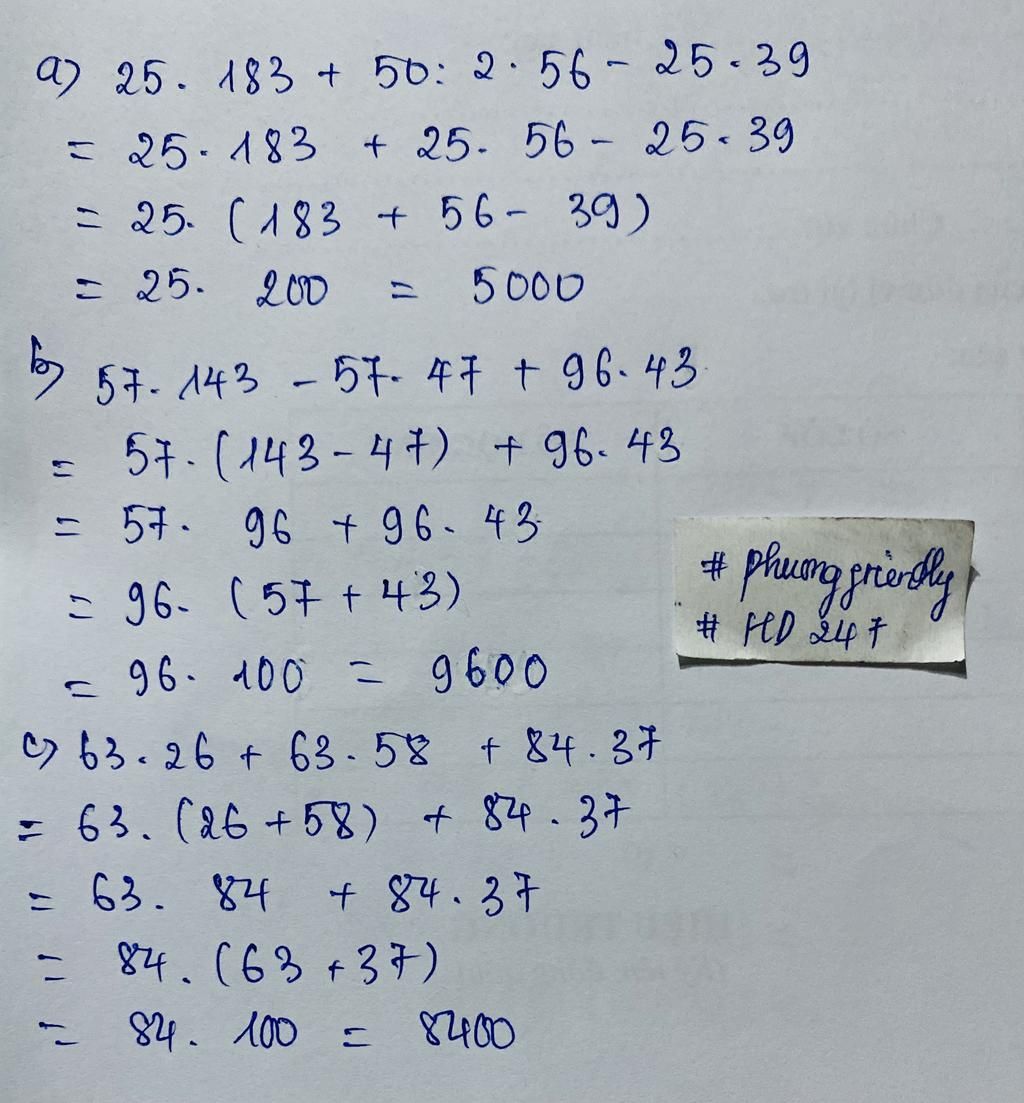 a) 25. 183 + 50: 2. 56 - 25. 39
= 25. 183 + 25. 56 - 25. 39
= 25. (183 + 56 - 39)
= 25. 200 = 5000
b) 57. 143 - 57. 47 + 96. 43
= 57. (143 - 47) + 96. 43
= 57. 96 + 96. 43
= 96. (57 + 43)
= 96. 100 = 9600
# phuonggfriendly
# HD 247
c) 63. 26 + 63. 58 + 84. 37
= 63. (26 + 58) + 84. 37
= 63. 84 + 84. 37
= 84. (63 + 37)
= 84. 100 = 8400